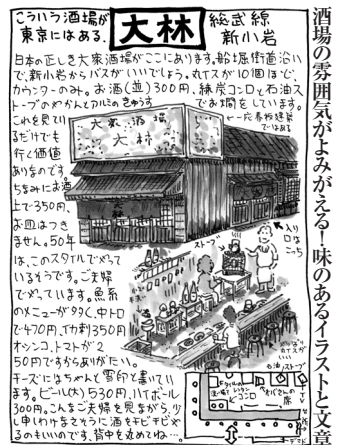 酒場の雰囲気がよみがえる！味のあるイラストと文章
こういう酒場が
東京にはある。
大林
総武線
新小岩
日本の正しき大衆酒場がここにあります。船堀街道沿い
で、新小岩からバスがいいでしょう。丸イスが10個ほど、
カウンターのみ。お酒(並)300円、練炭コンロと石油ス
トーブのやかんとアルミのきゅうす
でお燗をしています。
これを見てい
るだけでも
行く価値
ありなのです。
ちなみにお酒
上で350円、
お皿はつき
ません。50年
は、このスタイルでやって
いるそうです。ご夫婦
でやっています。魚系
のメニューが多く、中トロ
で470円、イカ刺350円
オシンコ、トマトが2
50円ですからありがたい。
チーズにはちゃんと雪印と書いてい
ます。ビール(大)530円、ハイボール
300円。こんなご夫婦を見ながら、少
し申しわけなさそうに酒をチビチビや
るのもいいのです、背中を丸めてね…。
←一応看板建築
ではある
大衆酒場
大林
入り
口は
こっち
ストーブ
石油ストーブ
コンロ